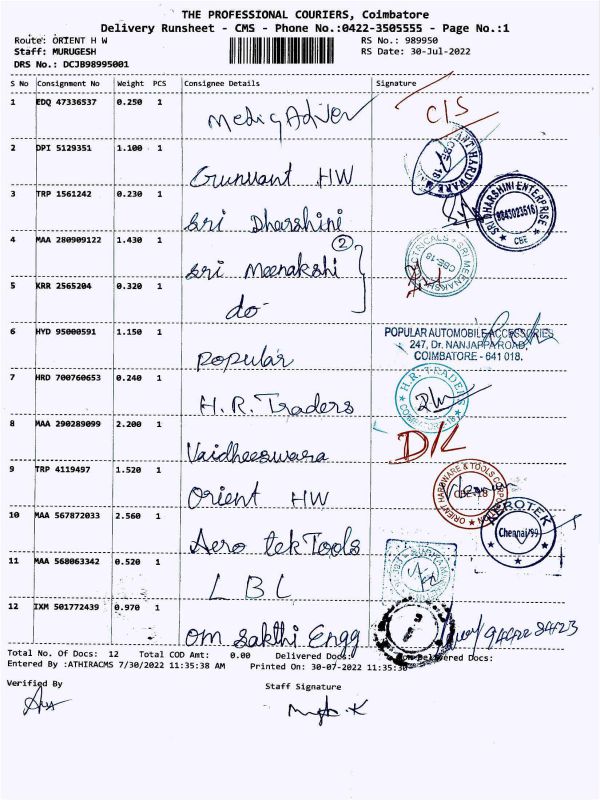 THE PROFESSIONAL COURIERS, Coimbatore
Delivery Runsheet - CMS - Phone No.:0422-3505555 - Page No.:1
Route: ORIENT H W RS No.: 989950
Staff: MURUGESH RS Date: 30-Jul-2022
DRS No.: DCJB98995001
S No Consignment No Weight PCS Consignee Details Signature
1 EDQ 47336537 0.250 1 C/S
2 DPI 5129351 1.100 1 Gunvant HW
3 TRP 1561242 0.230 1 Sri Dharshini
SRI DHARSHINI ENTERPRISE
9843023516
★ CBE ★
4 MAA 280909122 1.430 1 Sri Meenakshi 2
CBE-18
5 KRR 2565204 0.320 1 do
6 HYD 95000591 1.150 1 Popular
POPULAR AUTOMOBILE ACCESSORIES
247, Dr. NANJAPPA ROAD,
COIMBATORE - 641 018.
7 HRD 700760653 0.240 1 H.R. Traders
H.R. TRADERS
COIMBATORE 18
8 MAA 290289099 2.200 1 Vaidheeswara D/L
9 TRP 4119497 1.520 1 Orient HW
ORIENT HARDWARE & TOOLS
CBE-18
10 MAA 567872033 2.560 1 Aero tek Tools
AEROTEK
Chennai/99
11 MAA 568063342 0.520 1 L B L
12 IXM 501772439 0.970 1 Om Sakthi Engg
Total No. Of Docs: 12 Total COD Amt: 0.00 Delivered Docs: Delivered Docs:
Entered By :ATHIRACMS 7/30/2022 11:35:38 AM Printed On: 30-07-2022 11:35:38
Verified By Staff Signature